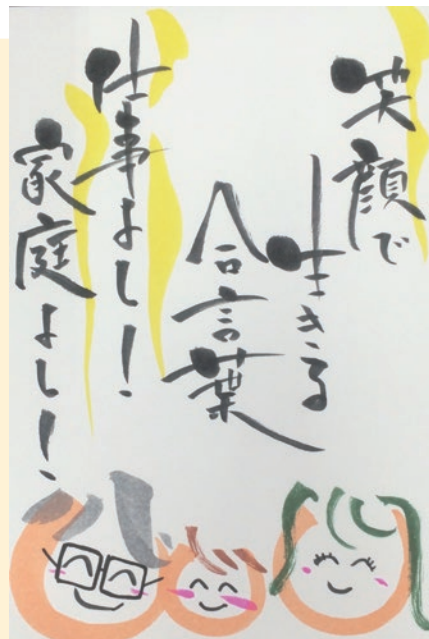 笑顔で
生きる
合言葉
仕事よし!
家庭よし!